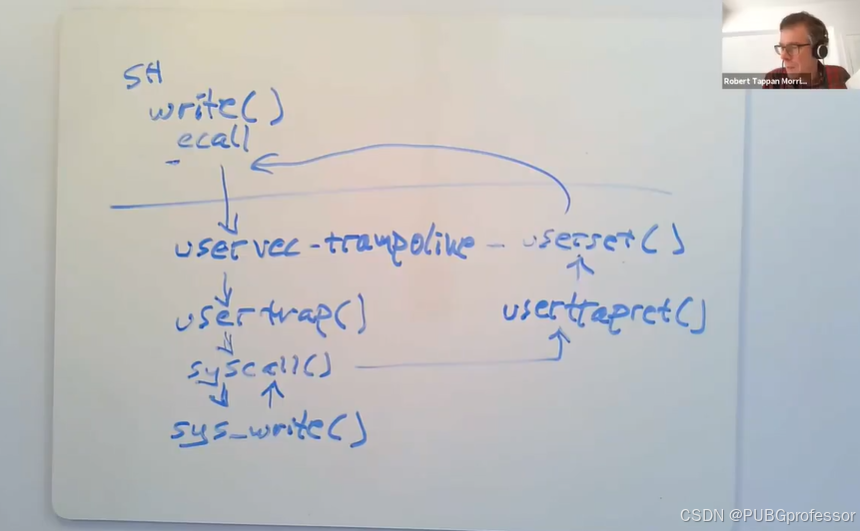 SH
Robert Tappan Morri...
write()
ecall
uservec - trampoline - userret()
usertrap()
usertrapret()
syscall()
sys_write()
CSDN @PUBGprofessor